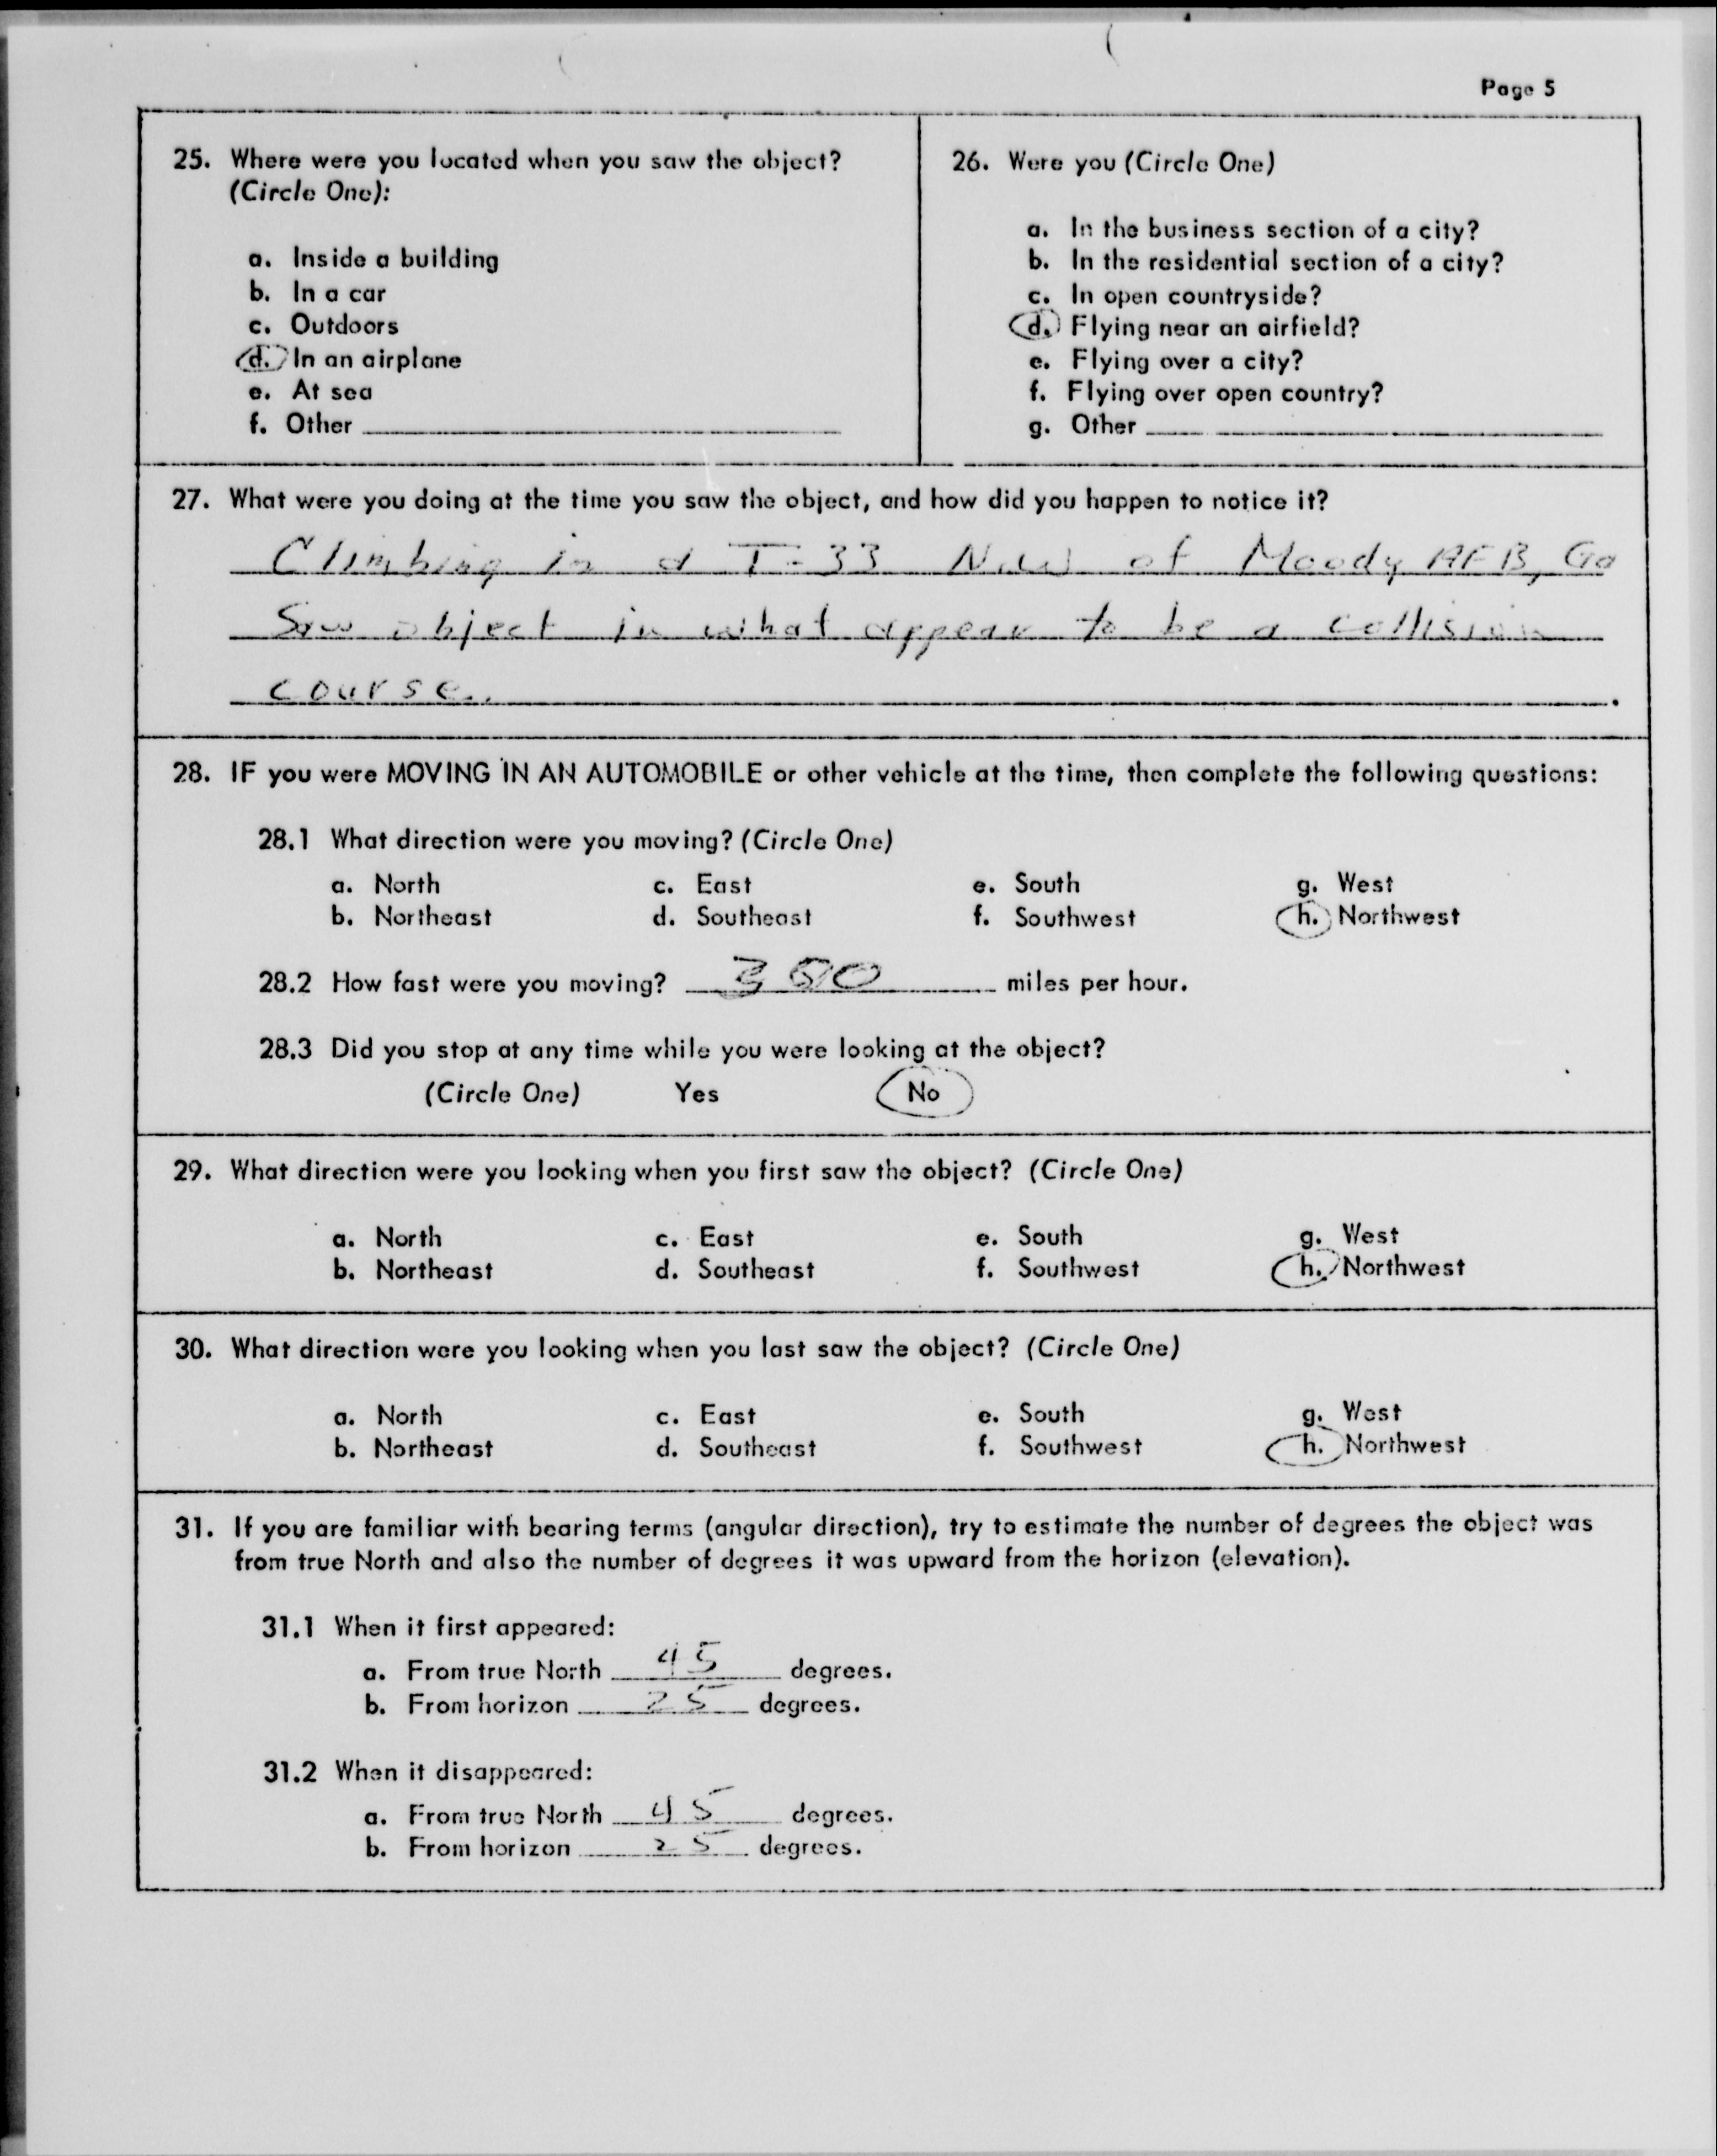 Page 5
25. Where were you located when you saw the object?
(Circle One):
a. Inside a building
b. In a car
c. Outdoors
d. In an airplane
e. At sea
f. Other
26. Were you (Circle One)
a. In the business section of a city?
b. In the residential section of a city?
c. In open countryside?
d. Flying near an airfield?
e. Flying over a city?
f. Flying over open country?
g. Other
27. What were you doing at the time you saw the object, and how did you happen to notice it?
Climbing in a T-33 N.W of Moody AFB, Ga
Saw object in what appear to be a collision
course.
28. IF you were MOVING IN AN AUTOMOBILE or other vehicle at the time, then complete the following questions:
28.1 What direction were you moving? (Circle One)
a. North c. East e. South g. West
b. Northeast d. Southeast f. Southwest h. Northwest
28.2 How fast were you moving? miles per hour.
28.3 Did you stop at any time while you were looking at the object?
(Circle One) Yes No
29. What direction were you looking when you first saw the object? (Circle One)
a. North c. East e. South g. West
b. Northeast d. Southeast f. Southwest h. Northwest
30. What direction were you looking when you last saw the object? (Circle One)
a. North c. East e. South g. West
b. Northeast d. Southeast f. Southwest h. Northwest
31. If you are familiar with bearing terms (angular direction), try to estimate the number of degrees the object was
from true North and also the number of degrees it was upward from the horizon (elevation).
31.1 When it first appeared:
a. From true North 45 degrees.
b. From horizon 25 degrees.
31.2 When it disappeared:
a. From true North 45 degrees.
b. From horizon 25 degrees.